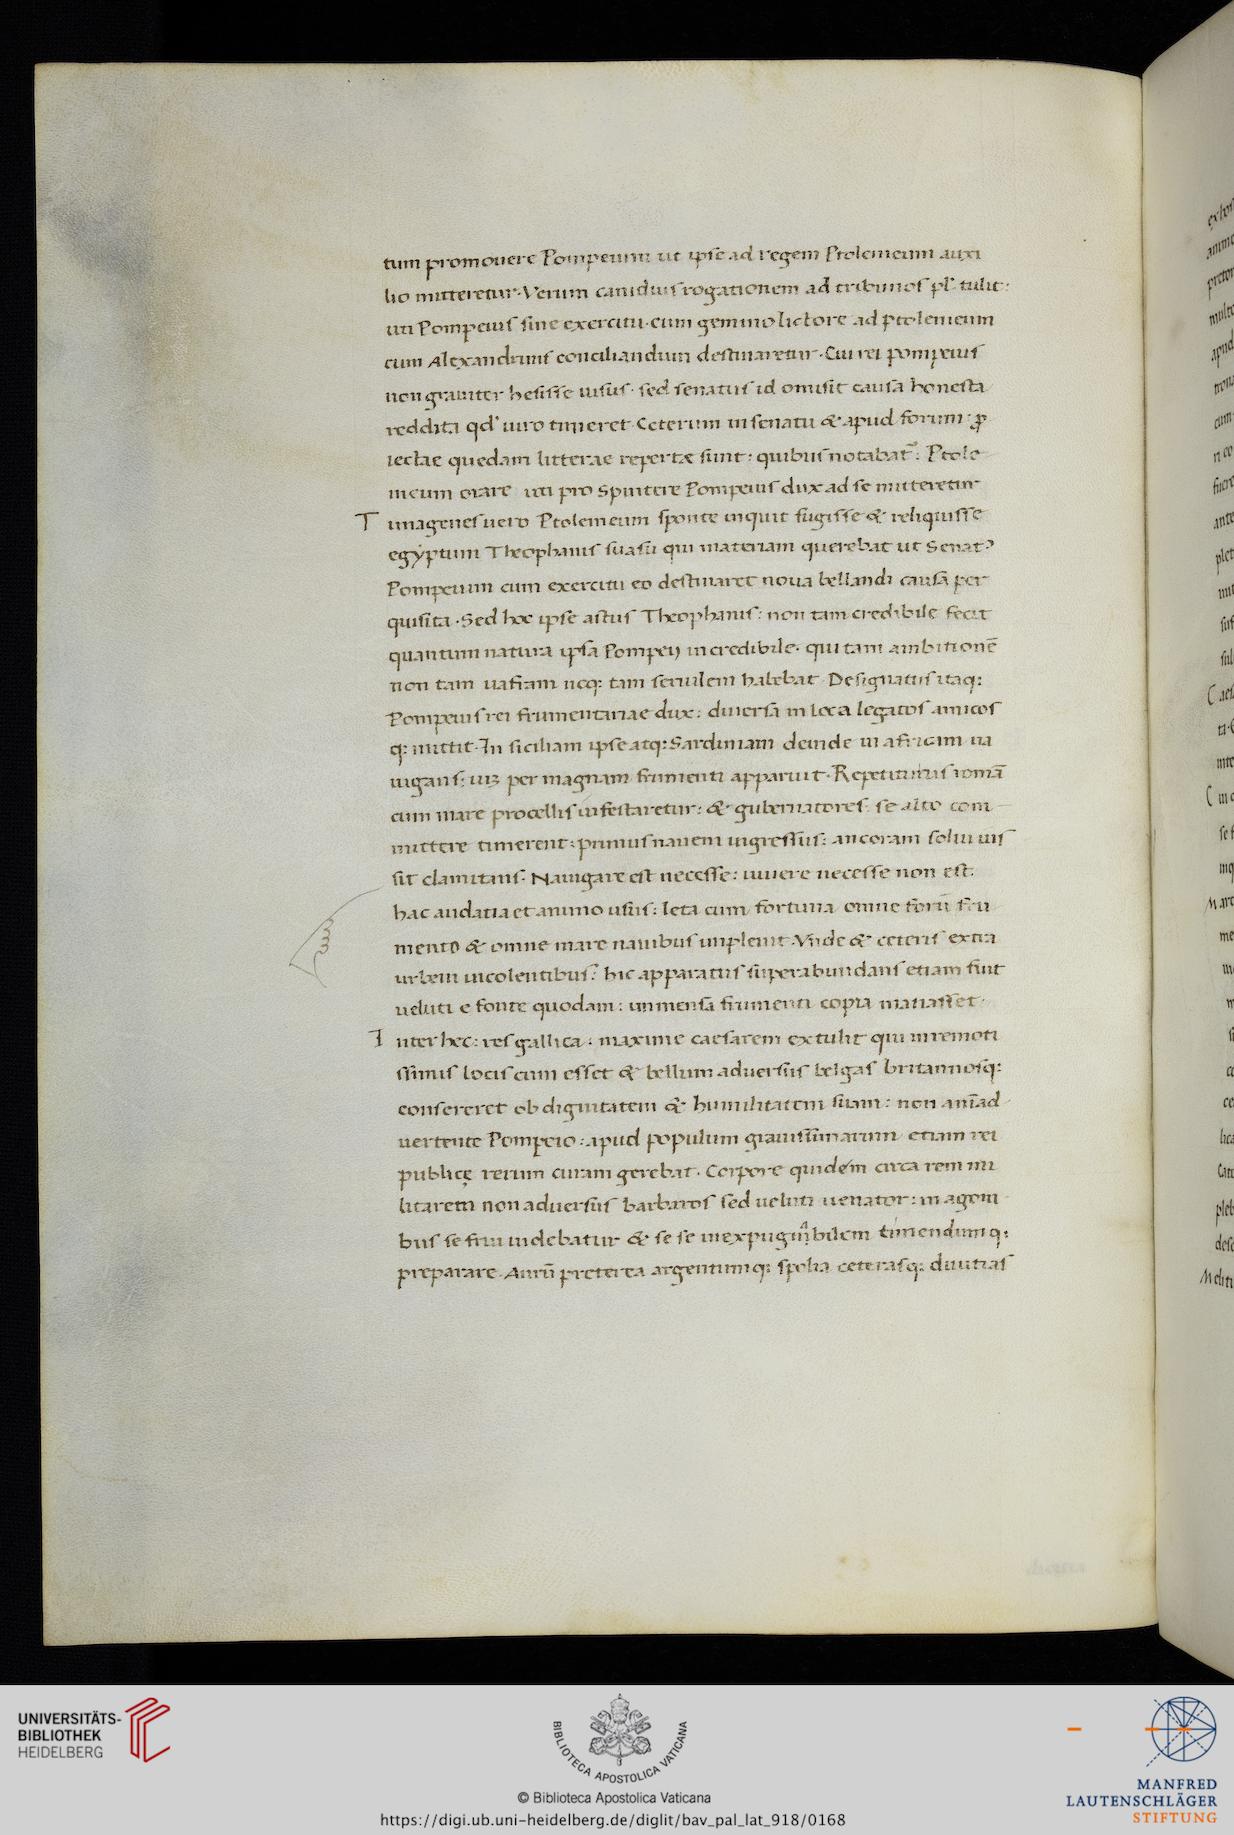 tum promouere Pompeium ut ipse ad regem Ptolemeum auxi
lio mitteretur. Verum canidius rogationem ad tribunos pl. tulit:
uti Pompeius sine exercitu. cum gemino lictore ad ptolemeum
cum Alexandrinis conciliandum destinaretur. Cui rei pompeius
non grauiter hesisse uisus. sed senatus id omisit causa honesta
reddita qd' uiro timeret. Ceterum in senatu & apud forum. ꝓ
iectae quedam litterae repertæ sunt: quibus notabat᷑: Ptole
meum orare uti pro Spintere Pompeius dux ad se mitteretur
Timagenes uero Ptolemeum sponte inquit fugisse & reliquisse
egẏptum Theophanis suasu qui materiam querebat ut Senatꝰ
Pompeium cum exercitu eo destinaret noua bellandi causa per
quisita. Sed hoc ipse astus Theophanis: non tam credibile fecit
quantum natura ipsa Pompeij incredibile. qui tam ambitionē
non tam uafram neq: tam seruilem habebat. Designatus itaq:
Pompeius rei frumentariae dux: diuersa in loca legatos amicos
q: mittit. In siciliam ipse atq: Sardiniam deinde in africam na
uigans: uiꝫ per magnam frumenti apparuit. Repetiturus romā
cum mare procellis infestaretur: & gubernatores se alto com
mittere timerent: primus nauem ingressus: ancoram solui uis
sit clamitans. Nauigare est necesse: uiuere necesse non est.
hac audatia et animo usus: leta cum fortuna omne forū fru
mento & omne mare nauibus impleuit. Vnde & ceteris extra
urbem incolentibus: hic apparatus superabundans etiam fuit
ueluti e fonte quodam: immensa frumenti copia manasset.
Inter hec: res gallica: maxime caesarem extulit qui in remoti
ssimis locis cum esset & bellum aduersus belgas britannosq:
consereret ob dignitatem & humilitatem suam: non aniāad
uertente Pompeio: apud populum grauissimarum etiam rei
publicę rerum curam gerebat. Corpore quidem circa rem mi
litarem non aduersus barbaros sed ueluti uenator: in agoni
bus se frui uidebatur & se se inexpugnabilem timendumq:
preparare. Aurū preterea argentumq: spolia ceterasq: diuitias
UNIVERSITÄTS-
BIBLIOTHEK
HEIDELBERG
BIBLIOTECA APOSTOLICA VATICANA
© Biblioteca Apostolica Vaticana
https://digi.ub.uni-heidelberg.de/diglit/bav_pal_lat_918/0168
MANFRED
LAUTENSCHLÄGER
STIFTUNG